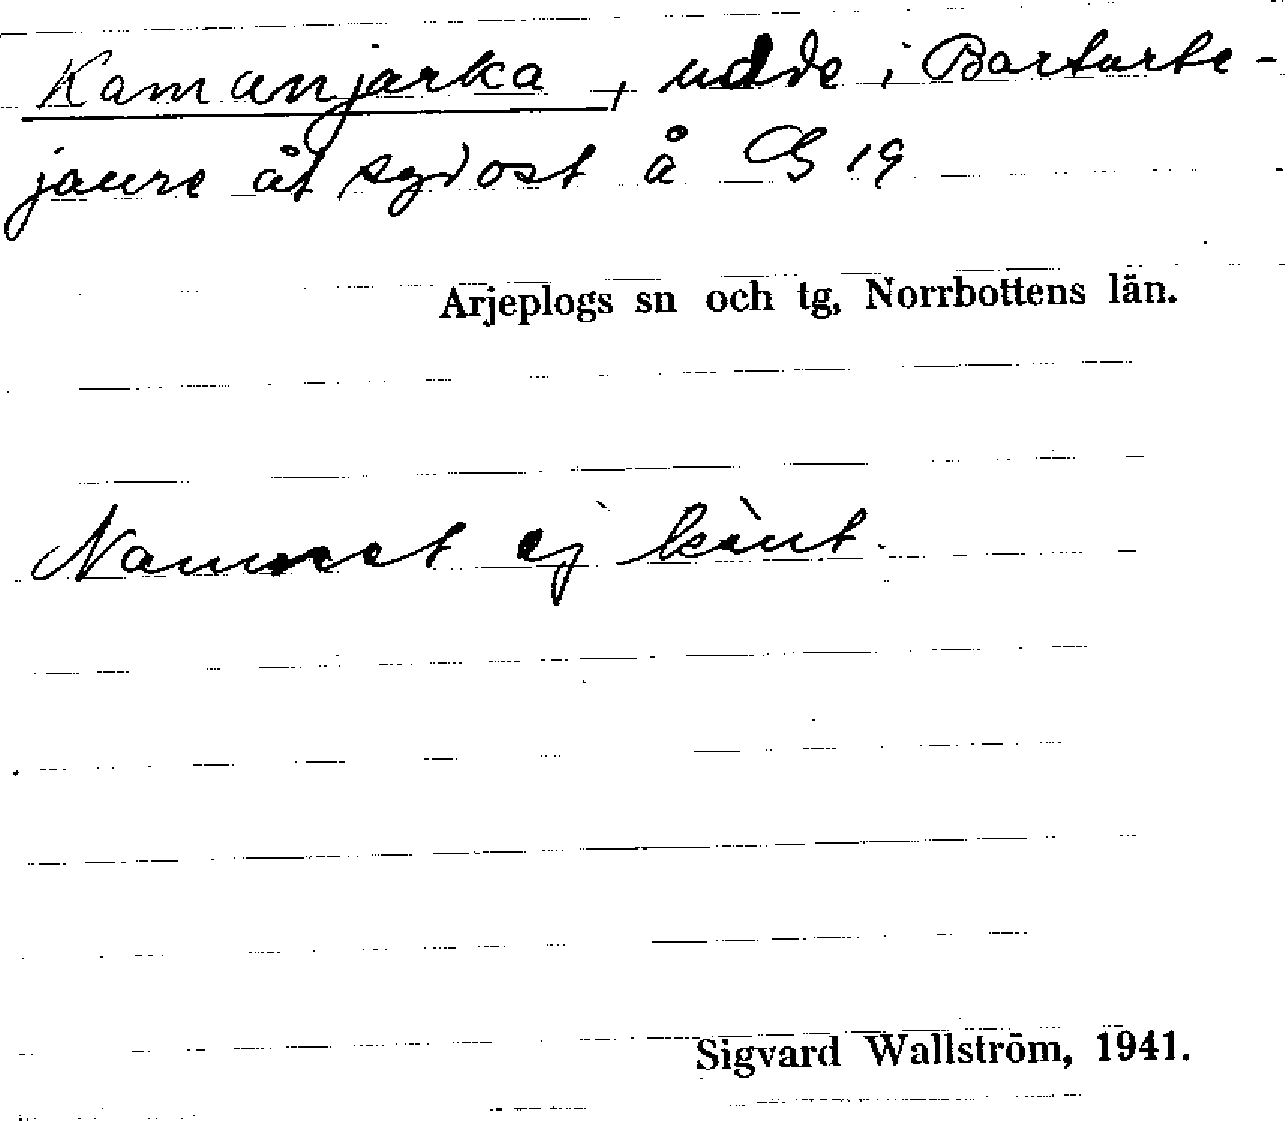 Kamanjarka, udde i Bartarte-
jaure åt sydost å G 19
Arjeplogs sn och tg, Norrbottens län.
Namnet ej känt.
Sigvard Wallström, 1941.